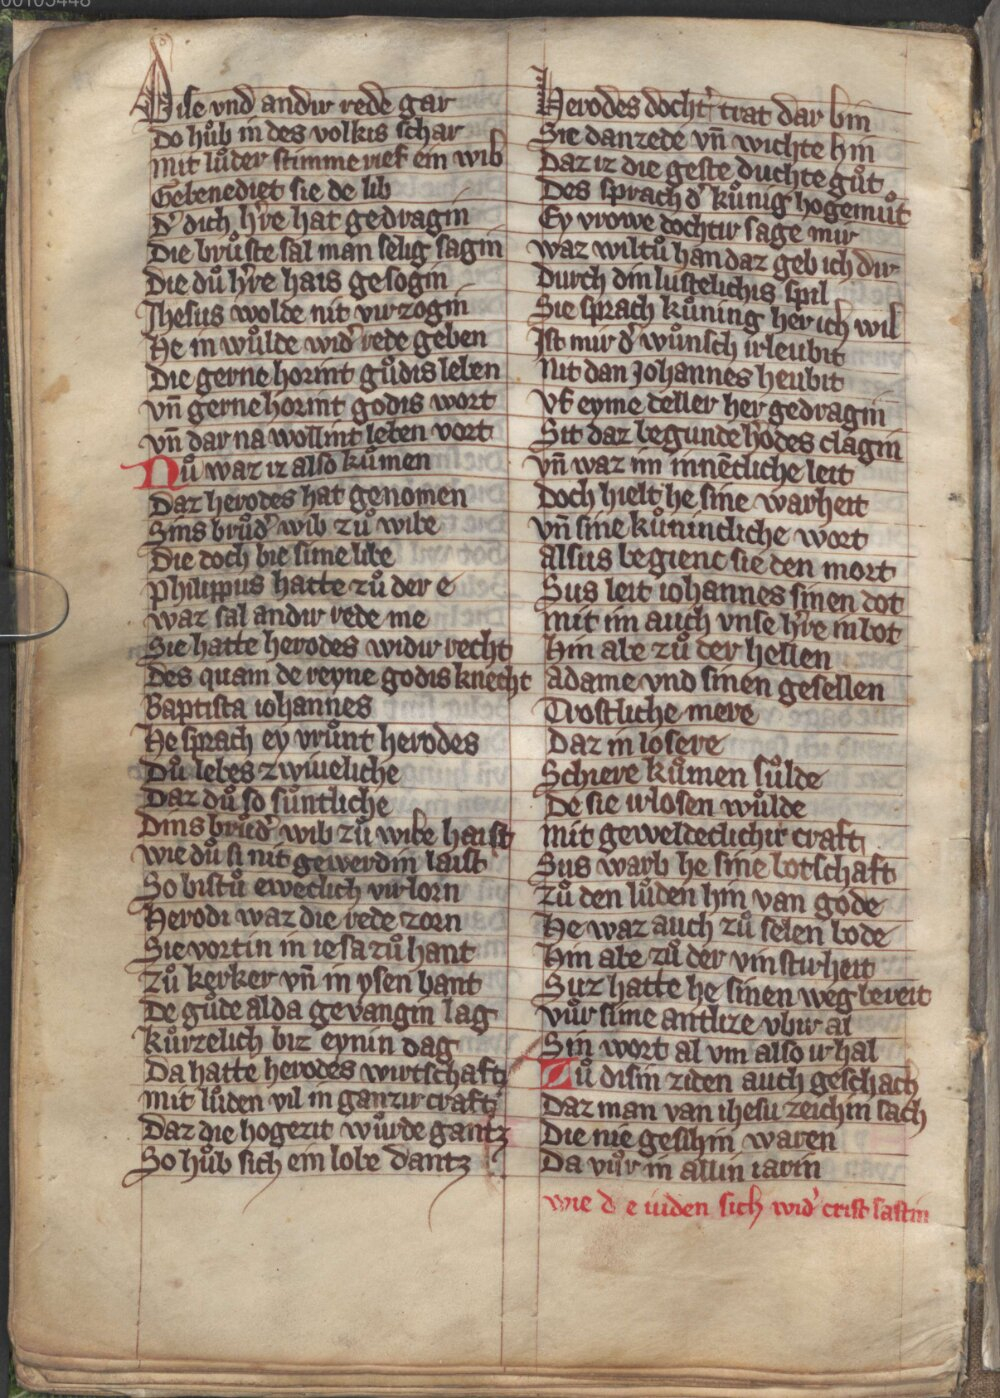 00105448
Dise vnd andir rede gar
Do hůb in des volkis schar
Mit lůder stimme rief ein wib
Gebenediet sie de lib
d' dich h're hat gedragin
Die brůste sal man selig sagin
Die dů h're hais gesogin
Jhesus wolde nit virzogin
He in wůlde wid' rede geben
Die gerne horint gůdis leben
vn̄ gerne horint godis wort
vn̄ dar na wollint leben vort
Nů waz iz also kůmen
Daz herodes hat genomen
Sins brůd' wib zů wibe
Die doch bie sime libe
Philippus hatte zů der e
waz sal andir rede me
Sie hatte herodes widir recht
Des quam de reyne godis knecht
Baptista iohannes
He sprach ey vrůnt herodes
Dů lebes zwiueliche
Daz dů so sůntliche
Dins brůd' wib zů wibe haist
wie dů si nit gewerdin laist
So bistů eweclich virlorn
Herodi waz die rede zorn
Sie vortin in iesa zů hant
Zů kerker vn̄ in ysen bant
De gůde alda gevangin lag
kůrzelich biz eynin dag
Da hatte herodes wirtschaft
mit lůden vil in ganzir craft
Daz die hogezit wůrde gantz
So hůb sich ein lobe dantz
Herodes docht' trat dar bin
Sie danzede vn̄ wichte hin
Daz iz die geste duchte gůt
Des sprach d' kůnig hogemůt
Ey vrowe dochtir sage mir
waz wiltů han daz geb ich dir
Durch din lustelichis spil
Sie sprach kůning her ich wil
Jst mir d' wůnsch irleubit
Nit dan Johannes heubit
vf eyme teller her gedragin
Sit daz begunde h'odes clagin
vn̄ waz im innēcliche leit
Doch hielt he sine warheit
vn̄ sine kůnincliche wort
alsus begienc sie den mort
Sus leit iohannes sinen dot
mit im auch vnse h're inbot
Hin abe zů der hellen
Adame vnd sinen gesellen
Trostliche mere
Daz in losere
Schiere kůmen sůlde
De sie irlosen wůlde
mit geweldeclichir craft
Sus warb he sine botschaft
Zů den lůden hin van gode
He waz auch zů selen bode
Hin abe zů der vinstirheit
Suz hatte he sinen weg bereit
vůr sime antlize vbir al
Sin wort al vm also irhal
Zů disin ziden auch geschach
Daz man van ihesu zeichin sach
Die nie gesihin waren
Da vůr in allin iarin
wie d e iuden sich wid' crist sastin